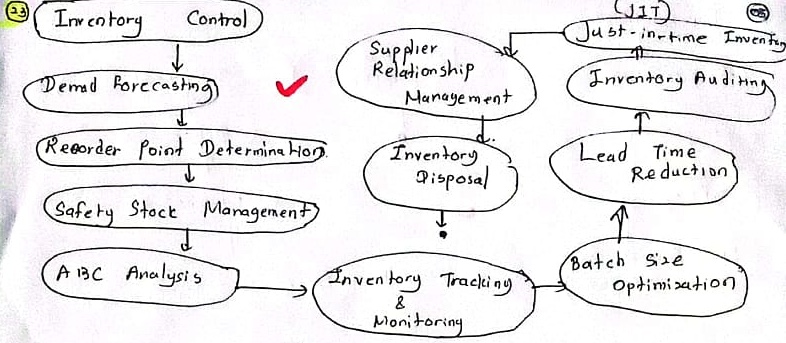 23
Inventory Control
Demad Forecasting
Reorder Point Determination
Safety Stock Management
ABC Analysis
Inventory Tracking
&
Monitoring
Batch Size
Optimization
Lead Time
Reduction
Inventory Auditing
(JIT)
Just-in-time Inventory
Supplier
Relationship
Management
Inventory
Disposal